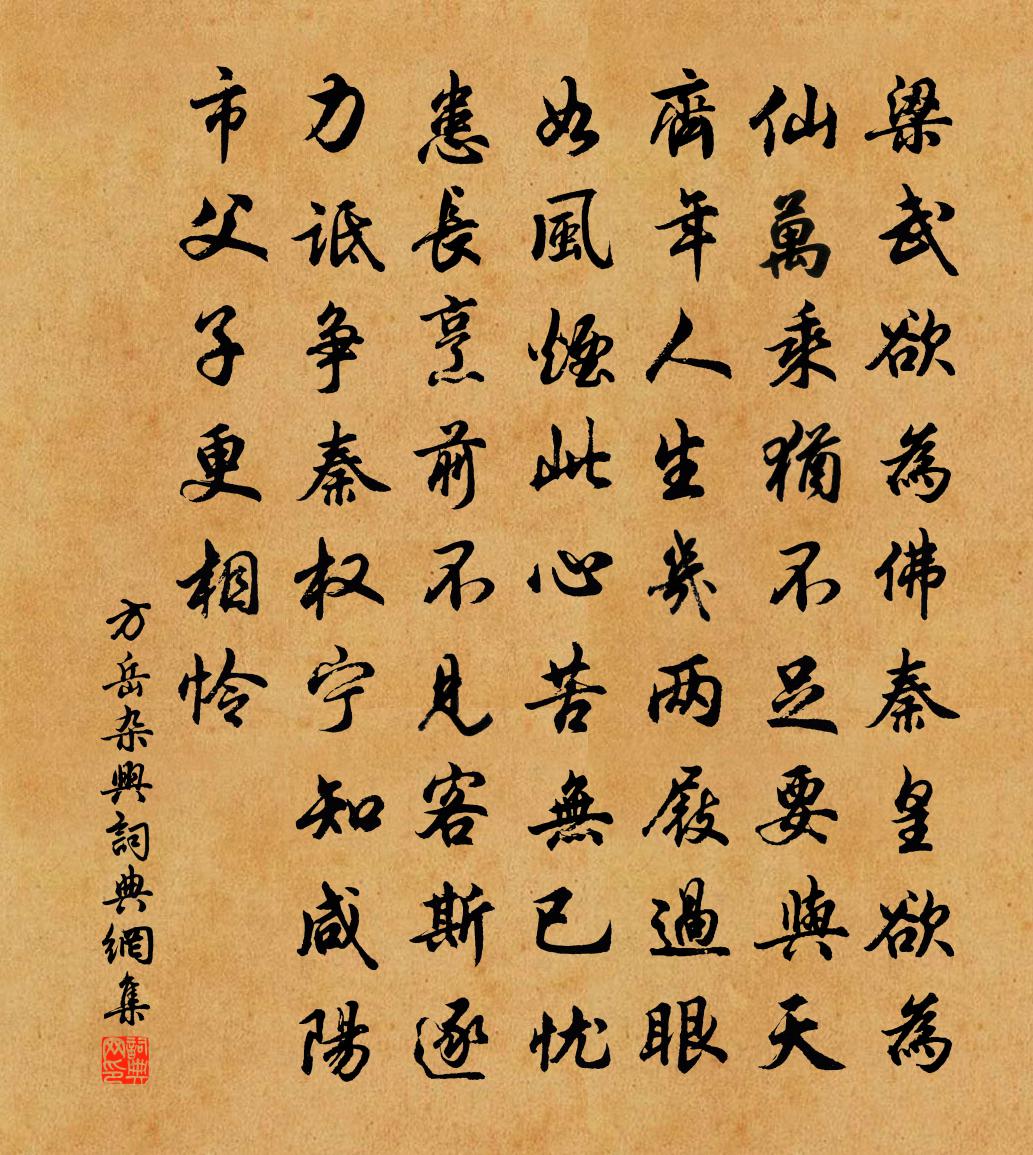 梁武欲為佛秦皇欲為
仙萬乘猶不足要與天
齊年人生幾两屐過眼
如風煙此心苦無已忧
患長烹前不見客斯逐
力诋争秦权宁知咸陽
市父子更相怜
方岳杂興詞典網集
詞典网印